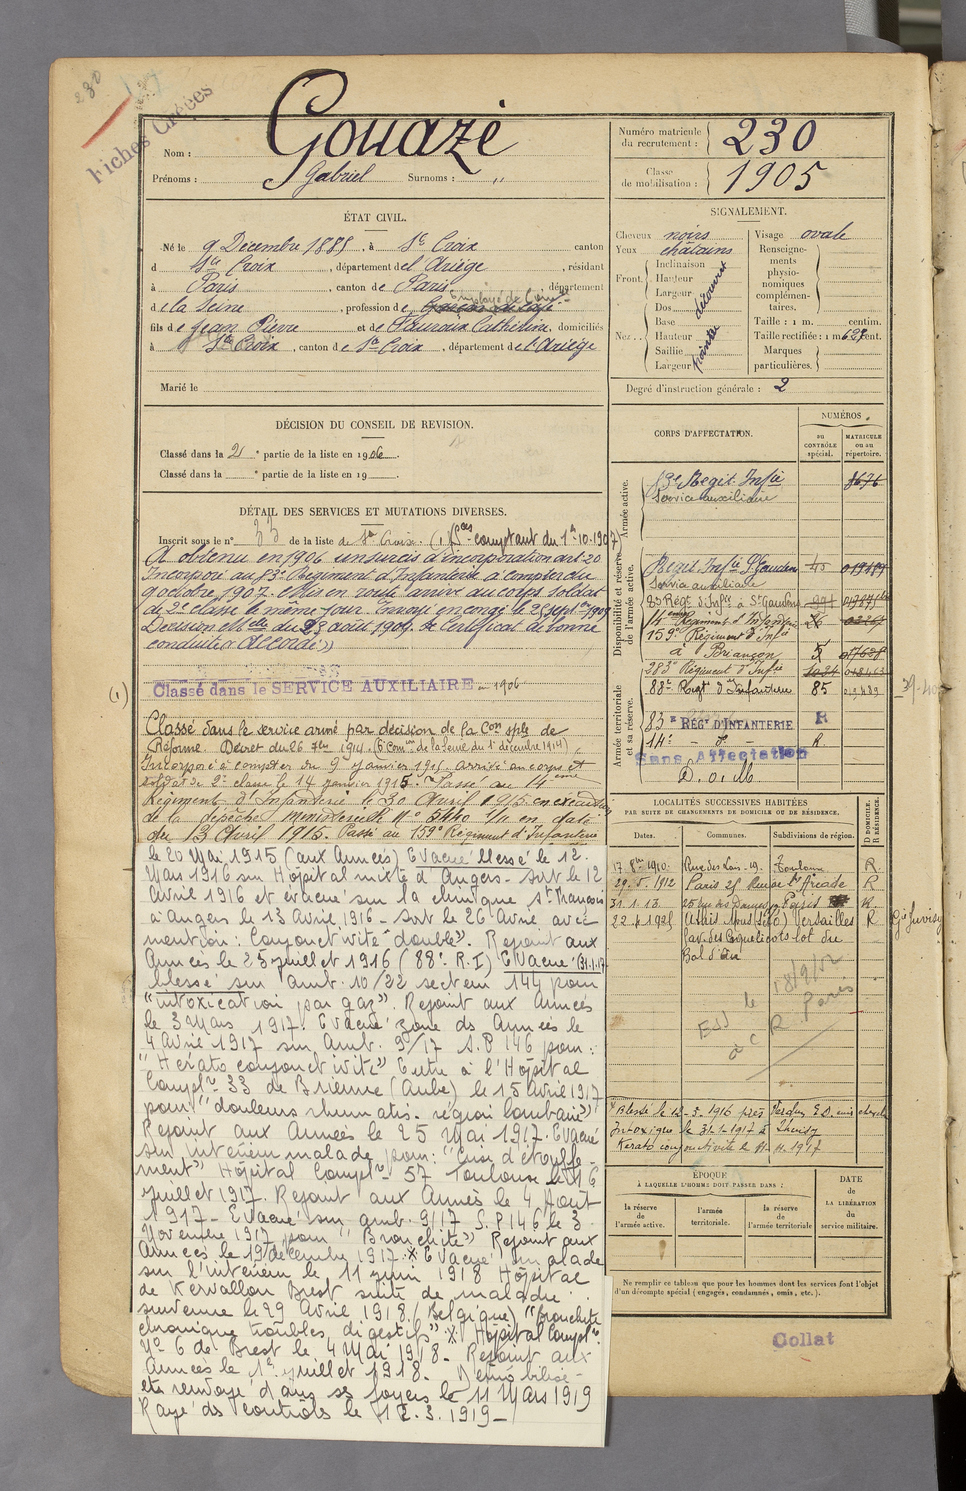 230
Fiches Créées
Nom : Gouazé
Prénoms : Gabriel Surnoms : "
Numéro matricule du recrutement : 230
Classe de mobilisation : 1905
ÉTAT CIVIL.
Né le 9 Décembre 1885, à Ste Croix canton
d Ste Croix, département de l'Ariège, résidant
à Paris, canton de Paris département
de la Seine, profession de
fils de Jean Pierre et de Cathérine, domiciliés
à Ste Croix, canton de Ste Croix, département de l'Ariège
Marié le
SIGNALEMENT.
Cheveux noirs Visage ovale
Yeux châtains Renseignements physionomiques complémentaires.
Front. Inclinaison Hauteur Largeur découvert
Nez.. Dos Base Hauteur Saillie Largeur
Taille : 1 m. centim.
Taille rectifiée : 1 m. cent.
Marques particulières.
Degré d'instruction générale : 2
DÉCISION DU CONSEIL DE REVISION.
Classé dans la 2e partie de la liste en 1906.
Classé dans la e partie de la liste en 19
DÉTAIL DES SERVICES ET MUTATIONS DIVERSES.
Inscrit sous le n° 33 de la liste de Ste Croix. (1) Sces comptant du 1er.10.1907)
A obtenu en 1906 un sursis d'incorporation art. 20
Incorporé au 83e Régiment d'Infanterie à compter du
9 octobre 1907. Mis en route arrivé au corps soldat
de 2e classe le même jour. Envoyé en congé le 25 septbre 1909
Décision Mlle du 23 août 1909. Certificat de bonne
conduite "Accordé"
(1) Classé dans le SERVICE AUXILIAIRE en 1906
Classé dans le service armé par décision de la Con sple de
Réforme. Décret du 26 7bre 1914. (6 Comon de la Seine du 1er décembre 1914)
Incorporé à compter du 9 janvier 1915. arrivé au corps et
soldat de 2e classe le 14 janvier 1915. Passé au 14eme
Régiment d'Infanterie le 30 Avril 1915 en exécution
de la dépêche ministérielle N° 5440 1/11 en date
du 13 Avril 1915. Passé au 159e Régiment d'Infanterie
le 20 Mai 1915 (aux Armées) Evacué blessé le 12
Mars 1916 sur Hôpital mixte d'Angers. sort le 12
Avril 1916 et évacué sur la clinique St François
à Angers le 13 Avril 1916 - sort le 26 Avril avec
mention : Conjonctivite double". Rejoint aux
Armées le 25 juillet 1916 (88e R.I) Evacué (31.1.17
blessé sur amb. 10/22 secteur 144 pour
"intoxication par gaz". Rejoint aux Armées
le 3 Mars 1917. Evacué zone ds Armées le
4 Avril 1917 sur Amb. 9/17 S.P 146 pour :
"Kérato conjonctivite" Entré à l'Hôpital
Complre 33 de Brienne (Aube) le 15 Avril 1917
pour "douleurs rhumatis. région lombaire"
Rejoint aux Armées le 25 Mai 1917. Evacué
sur intérieur malade pour : "Crise d'étouffe-
ment" Hôpital Complre 57 Toulouse le 16
juillet 1917. Rejoint aux Armées le 4 Aout
1917 - Evacué sur amb. 9/17 S.P 146 le 3
Novembre 1917 pour "Bronchite" Rejoint aux
Armées le 19 décembre 1917. x Evacué malade
sur l'intérieur le 11 juin 1918 Hôpital
de Kervallon Brest suite de maladie
survenue le 29 Avril 1918 (Belgique) "Bronchite
chronique troubles digestifs" x Hopital Complre
N° 6 de Brest le 4 Mai 1918 - Rejoint aux
Armées le 1er juillet 1918. Démobilisé
et renvoyé dans ses foyers le 11 Mars 1919
Rayé ds contrôles le 12.3.1919 -
CORPS D'AFFECTATION.
NUMÉROS
au CONTRÔLE spécial.
MATRICULE ou au répertoire.
Armée active.
83e Régit Infie 8676
Service auxiliaire
Disponibilité et réserve de l'armée active.
Régit Infie St Gaudens 45
Service auxiliaire
83 Régt d'Infie à St Gaudens
14eme Régiment d'Infanterie 26
159e Régiment d'Infie
à Briançon
283e Régiment d'Infie
88e Régt d'Infanterie 85
39-40
Armée territoriale et sa réserve.
83e RÉGt D'INFANTERIE R
14e - d° - R.
Sans Affectation
D. o. M
LOCALITÉS SUCCESSIVES HABITÉES
PAR SUITE DE CHANGEMENTS DE DOMICILE OU DE RÉSIDENCE.
Dates. Communes. Subdivisions de région. D DOMICILE. R RÉSIDENCE.
17 8bre 1910. Rue des Lois. 19. Toulouse R.
29. 5. 1912 Paris 25 Rue de l'Arcade R
31. 1. 13. Paris
22.4.1925 Versailles R Gie Juvisy
1 av. des Coquelicots lot du
Bal d'Air
18/9/52
Paris
Blessé le 12-3-1916 près Verdun E.O.
Intoxiqué le 31.1.1917 à
Kérato conjonctivite le
ÉPOQUE
À LAQUELLE L'HOMME DOIT PASSER DANS :
la réserve de l'armée active.
l'armée territoriale.
la réserve de l'armée territoriale
DATE de LA LIBÉRATION du service militaire.
Ne remplir ce tableau que pour les hommes dont les services font l'objet
d'un décompte spécial (engagés, condamnés, omis, etc.).
Collat